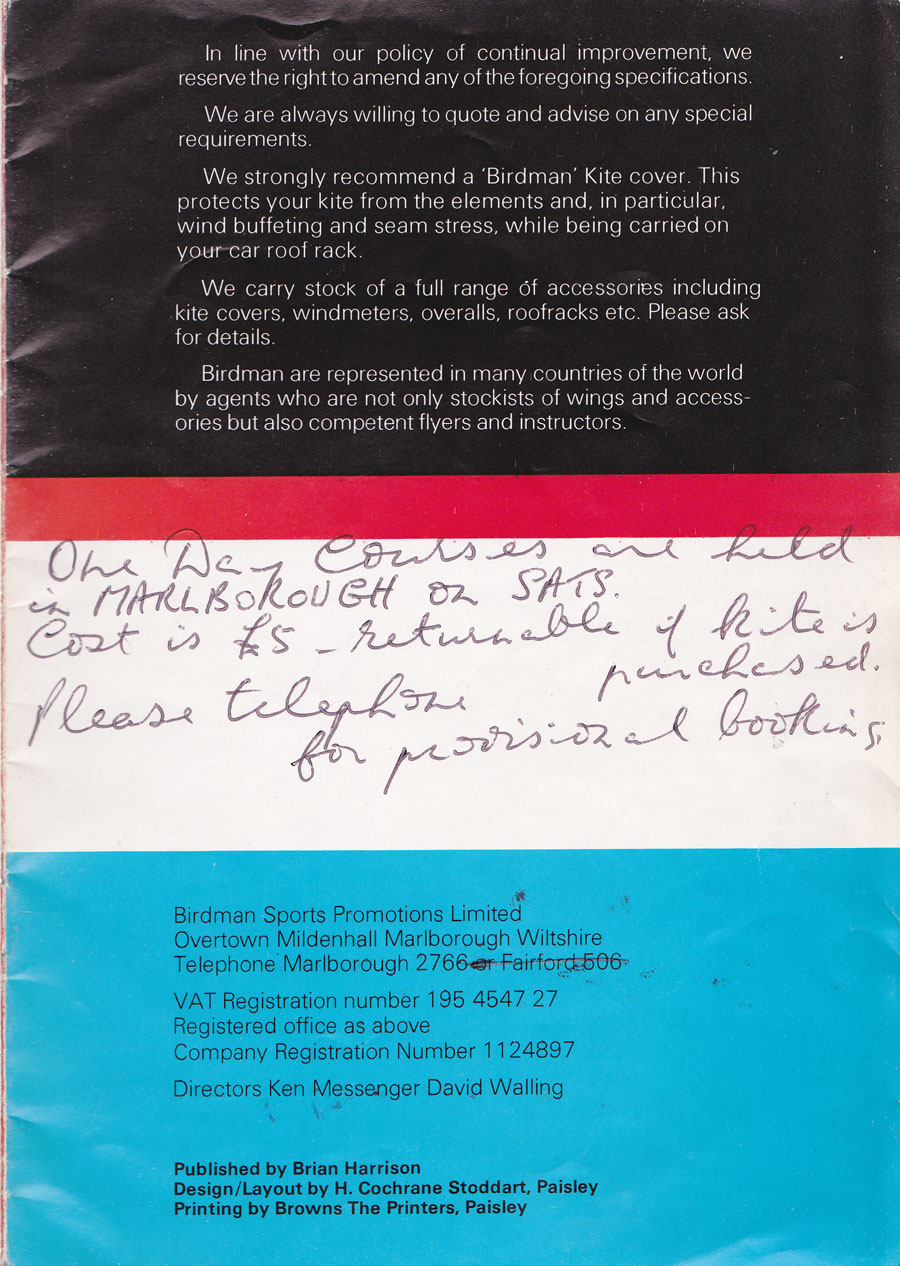 In line with our policy of continual improvement, we
reserve the right to amend any of the foregoing specifications.
We are always willing to quote and advise on any special
requirements.
We strongly recommend a ‘Birdman’ Kite cover. This
protects your kite from the elements and, in particular,
wind buffeting and seam stress, while being carried on
your car roof rack.
We carry stock of a full range of accessories including
kite covers, windmeters, overalls, roofracks etc. Please ask
for details.
Birdman are represented in many countries of the world
by agents who are not only stockists of wings and access-
ories but also competent flyers and instructors.
One Day Courses are held
in MARLBOROUGH on SATS.
Cost is £5 – returnable if kite is
purchased.
Please telephone
for provisional booking
Birdman Sports Promotions Limited
Overtown Mildenhall Marlborough Wiltshire
Telephone Marlborough 2766 or Fairford 506
VAT Registration number 195 4547 27
Registered office as above
Company Registration Number 1124897
Directors Ken Messenger David Walling
Published by Brian Harrison
Design/Layout by H. Cochrane Stoddart, Paisley
Printing by Browns The Printers, Paisley